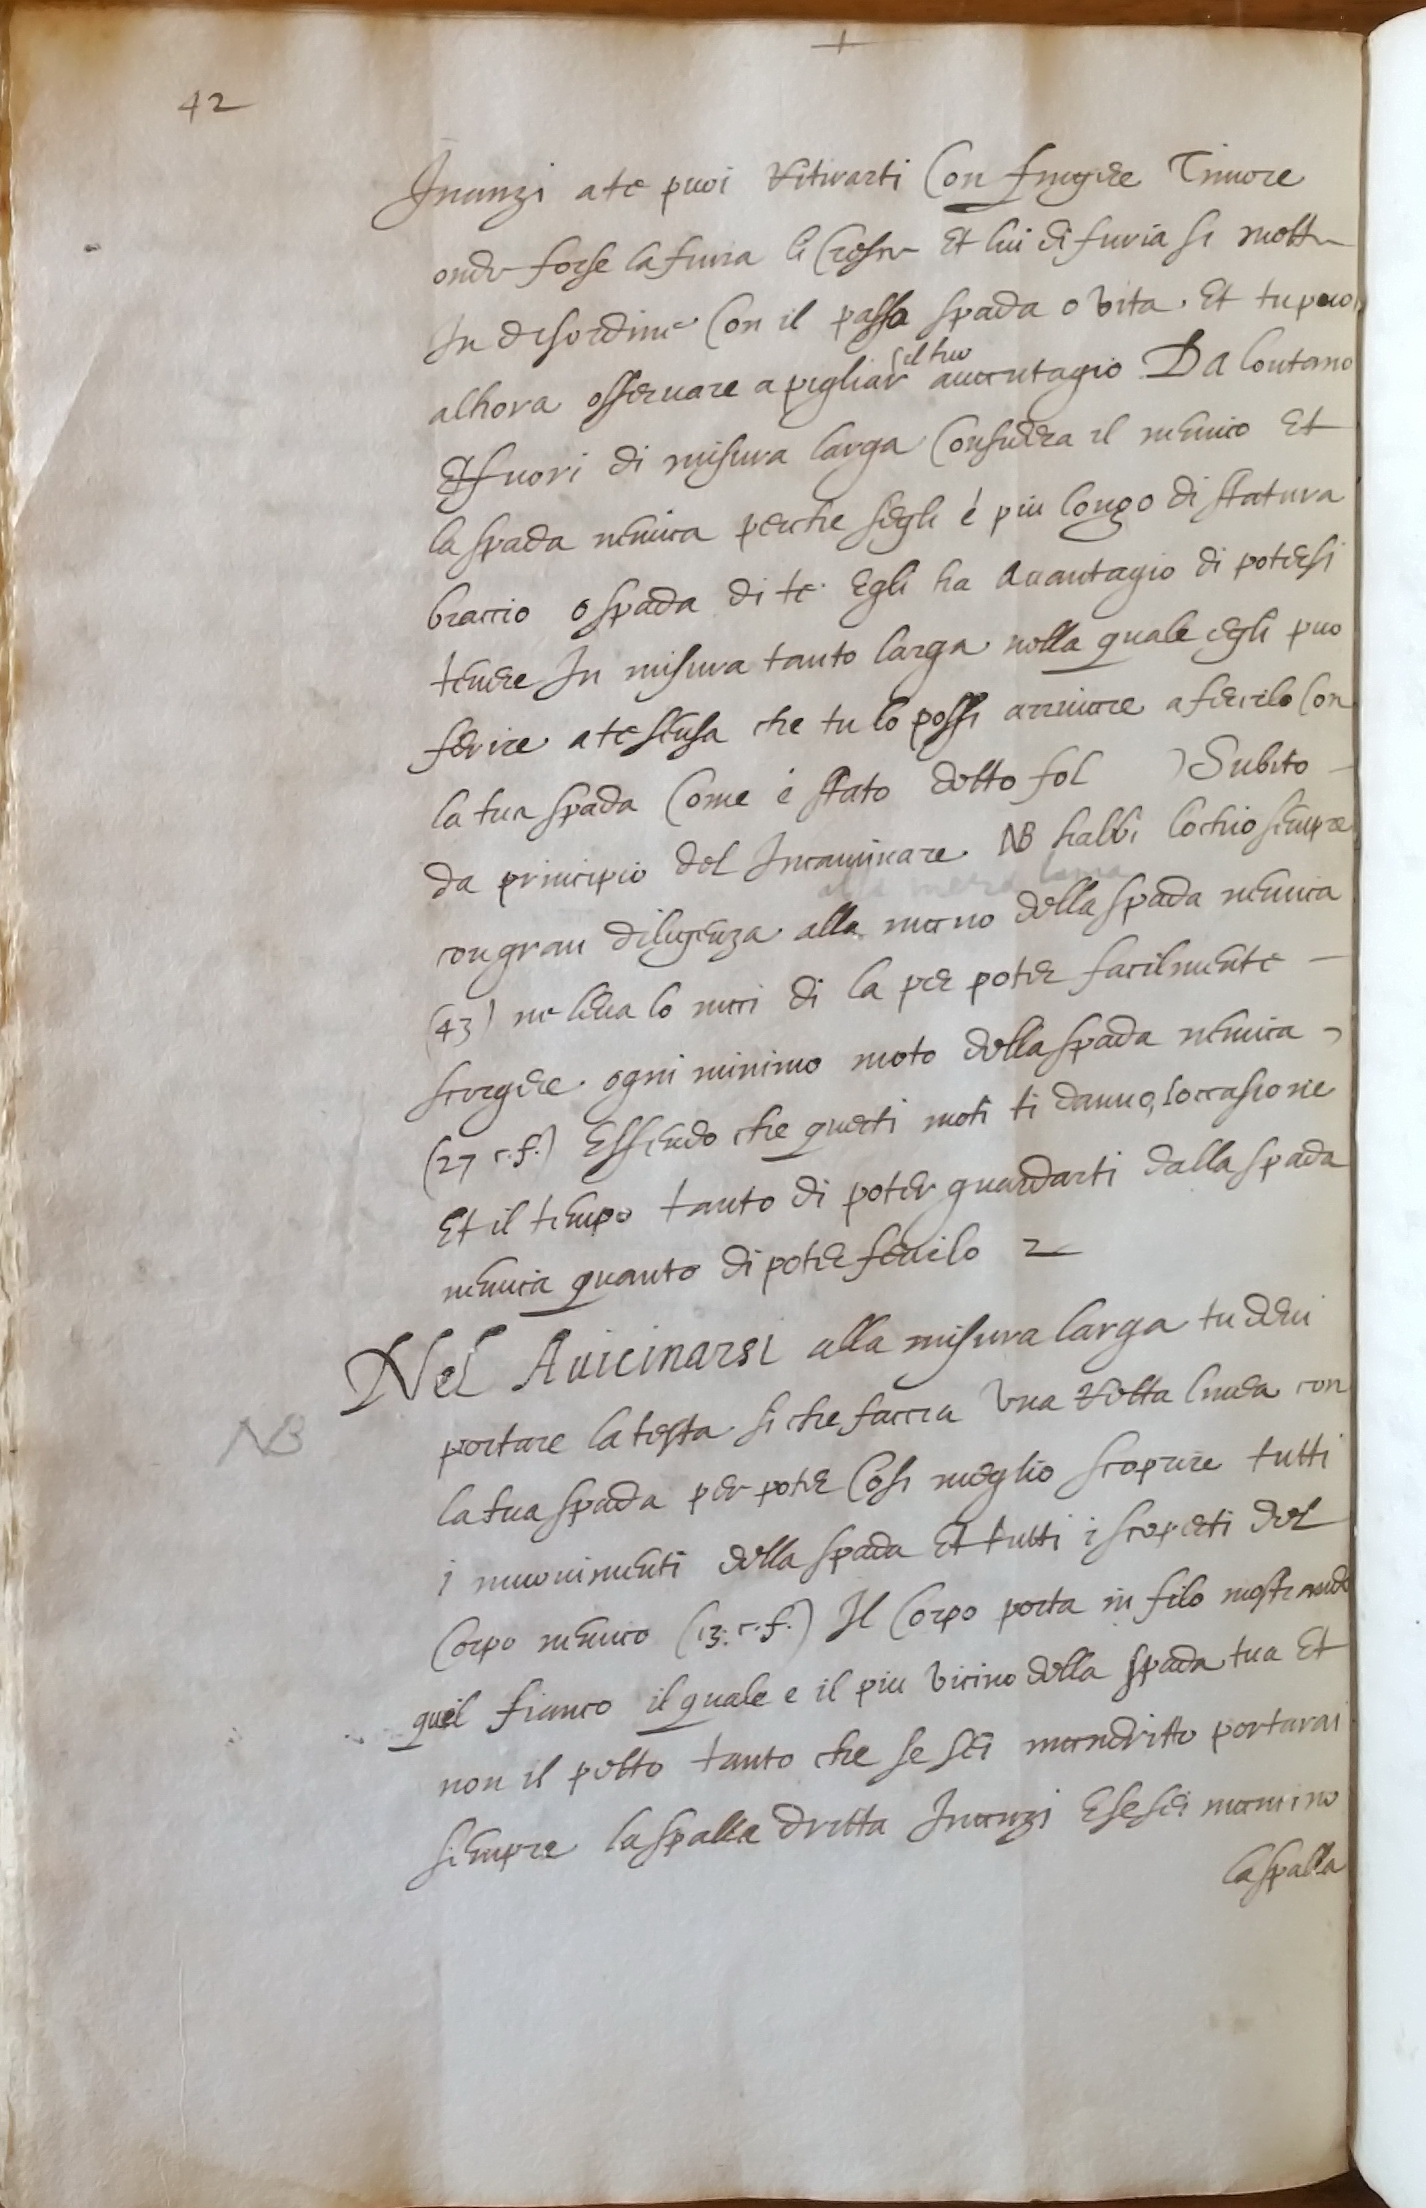 42
Inanzi a te puoi ritirarti Con fingere Timore
onde forse la furia li Cresce Et lui di furia si mette
In disordine Con il passo spada o vita. Et tu puoi
il tuo
alhora osservare a pigliar avantagio Da lontano
Et fuori di misura larga Considera il nemico Et
la spada nemica perche s'egli é piu longo di statura
braccio o spada di te. Egli ha Avantagio di potersi
tenere In misura tanto larga nella quale egli puo
ferire a te sensa che tu lo possi arrivare a ferirlo Con
la tua spada Come é stato detto fol ) Subito
da principio del Incaminare. NB habbi lochio sempre
alla meza lama
con gran diligenza alla mano della spada nemica
(43) ne leva lo mai di la per poter facilmente
scorgere ogni minimo moto della spada nemica
(27 c.f.) Essendo che questi moti ti danno, loccasione
Et il tempo tanto di poter guardarti dalla spada
nemica quanto di poter ferirlo
Nel Avicinarsi alla misura larga tu devi
NB
portare la testa si che faccia una retta linea con
la tua spada per poter Cosi meglio scoprire tutti
i muovimenti della spada Et tutti i scoperti del
Corpo nemico (13. c.f.) Il Corpo porta in filo mostrando
quel fianco il quale e il piu vicino della spada tua Et
non il petto tanto che se sei mandritto portarai
siempre la spalla dritta Inanzi E se sei mancino
la spalla